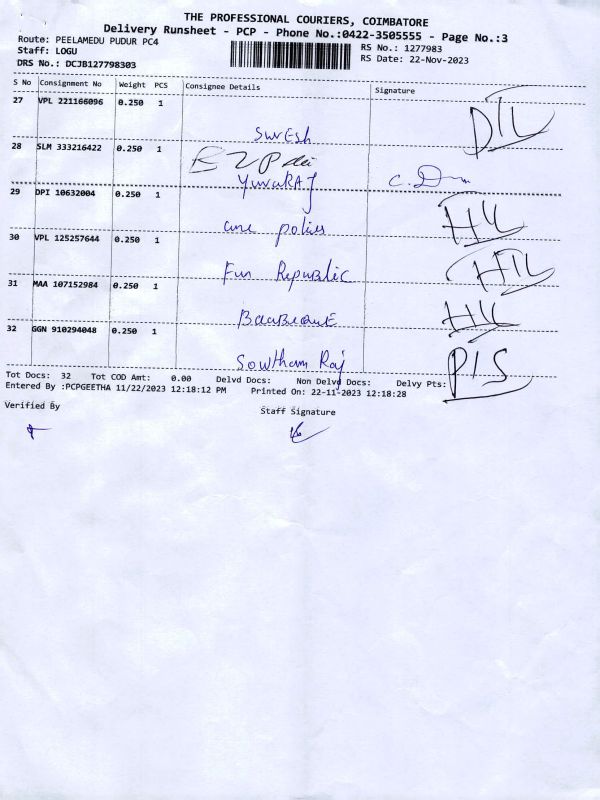 THE PROFESSIONAL COURIERS, COIMBATORE
Delivery Runsheet - PCP - Phone No.:0422-3505555 - Page No.:3
Route: PEELAMEDU PUDUR PC4
RS No.: 1277983
Staff: LOGU
RS Date: 22-Nov-2023
DRS No.: DCJB127798303
S No Consignment No Weight PCS Consignee Details Signature
27 VPL 221166096 0.250 1
Suresh
D/L
28 SLM 333216422 0.250 1
Yuvaraj
29 DPI 10632004 0.250 1
H/L
30 VPL 125257644 0.250 1
Fun Republic
H/L
31 MAA 107152984 0.250 1
H/L
32 GGN 910294048 0.250 1
Sowtham Raj
P/S
Tot Docs: 32 Tot COD Amt: 0.00 Delvd Docs: Non Delvd Docs: Delvy Pts:
Entered By :PCPGEETHA 11/22/2023 12:18:12 PM Printed On: 22-11-2023 12:18:28
Verified By
Staff Signature